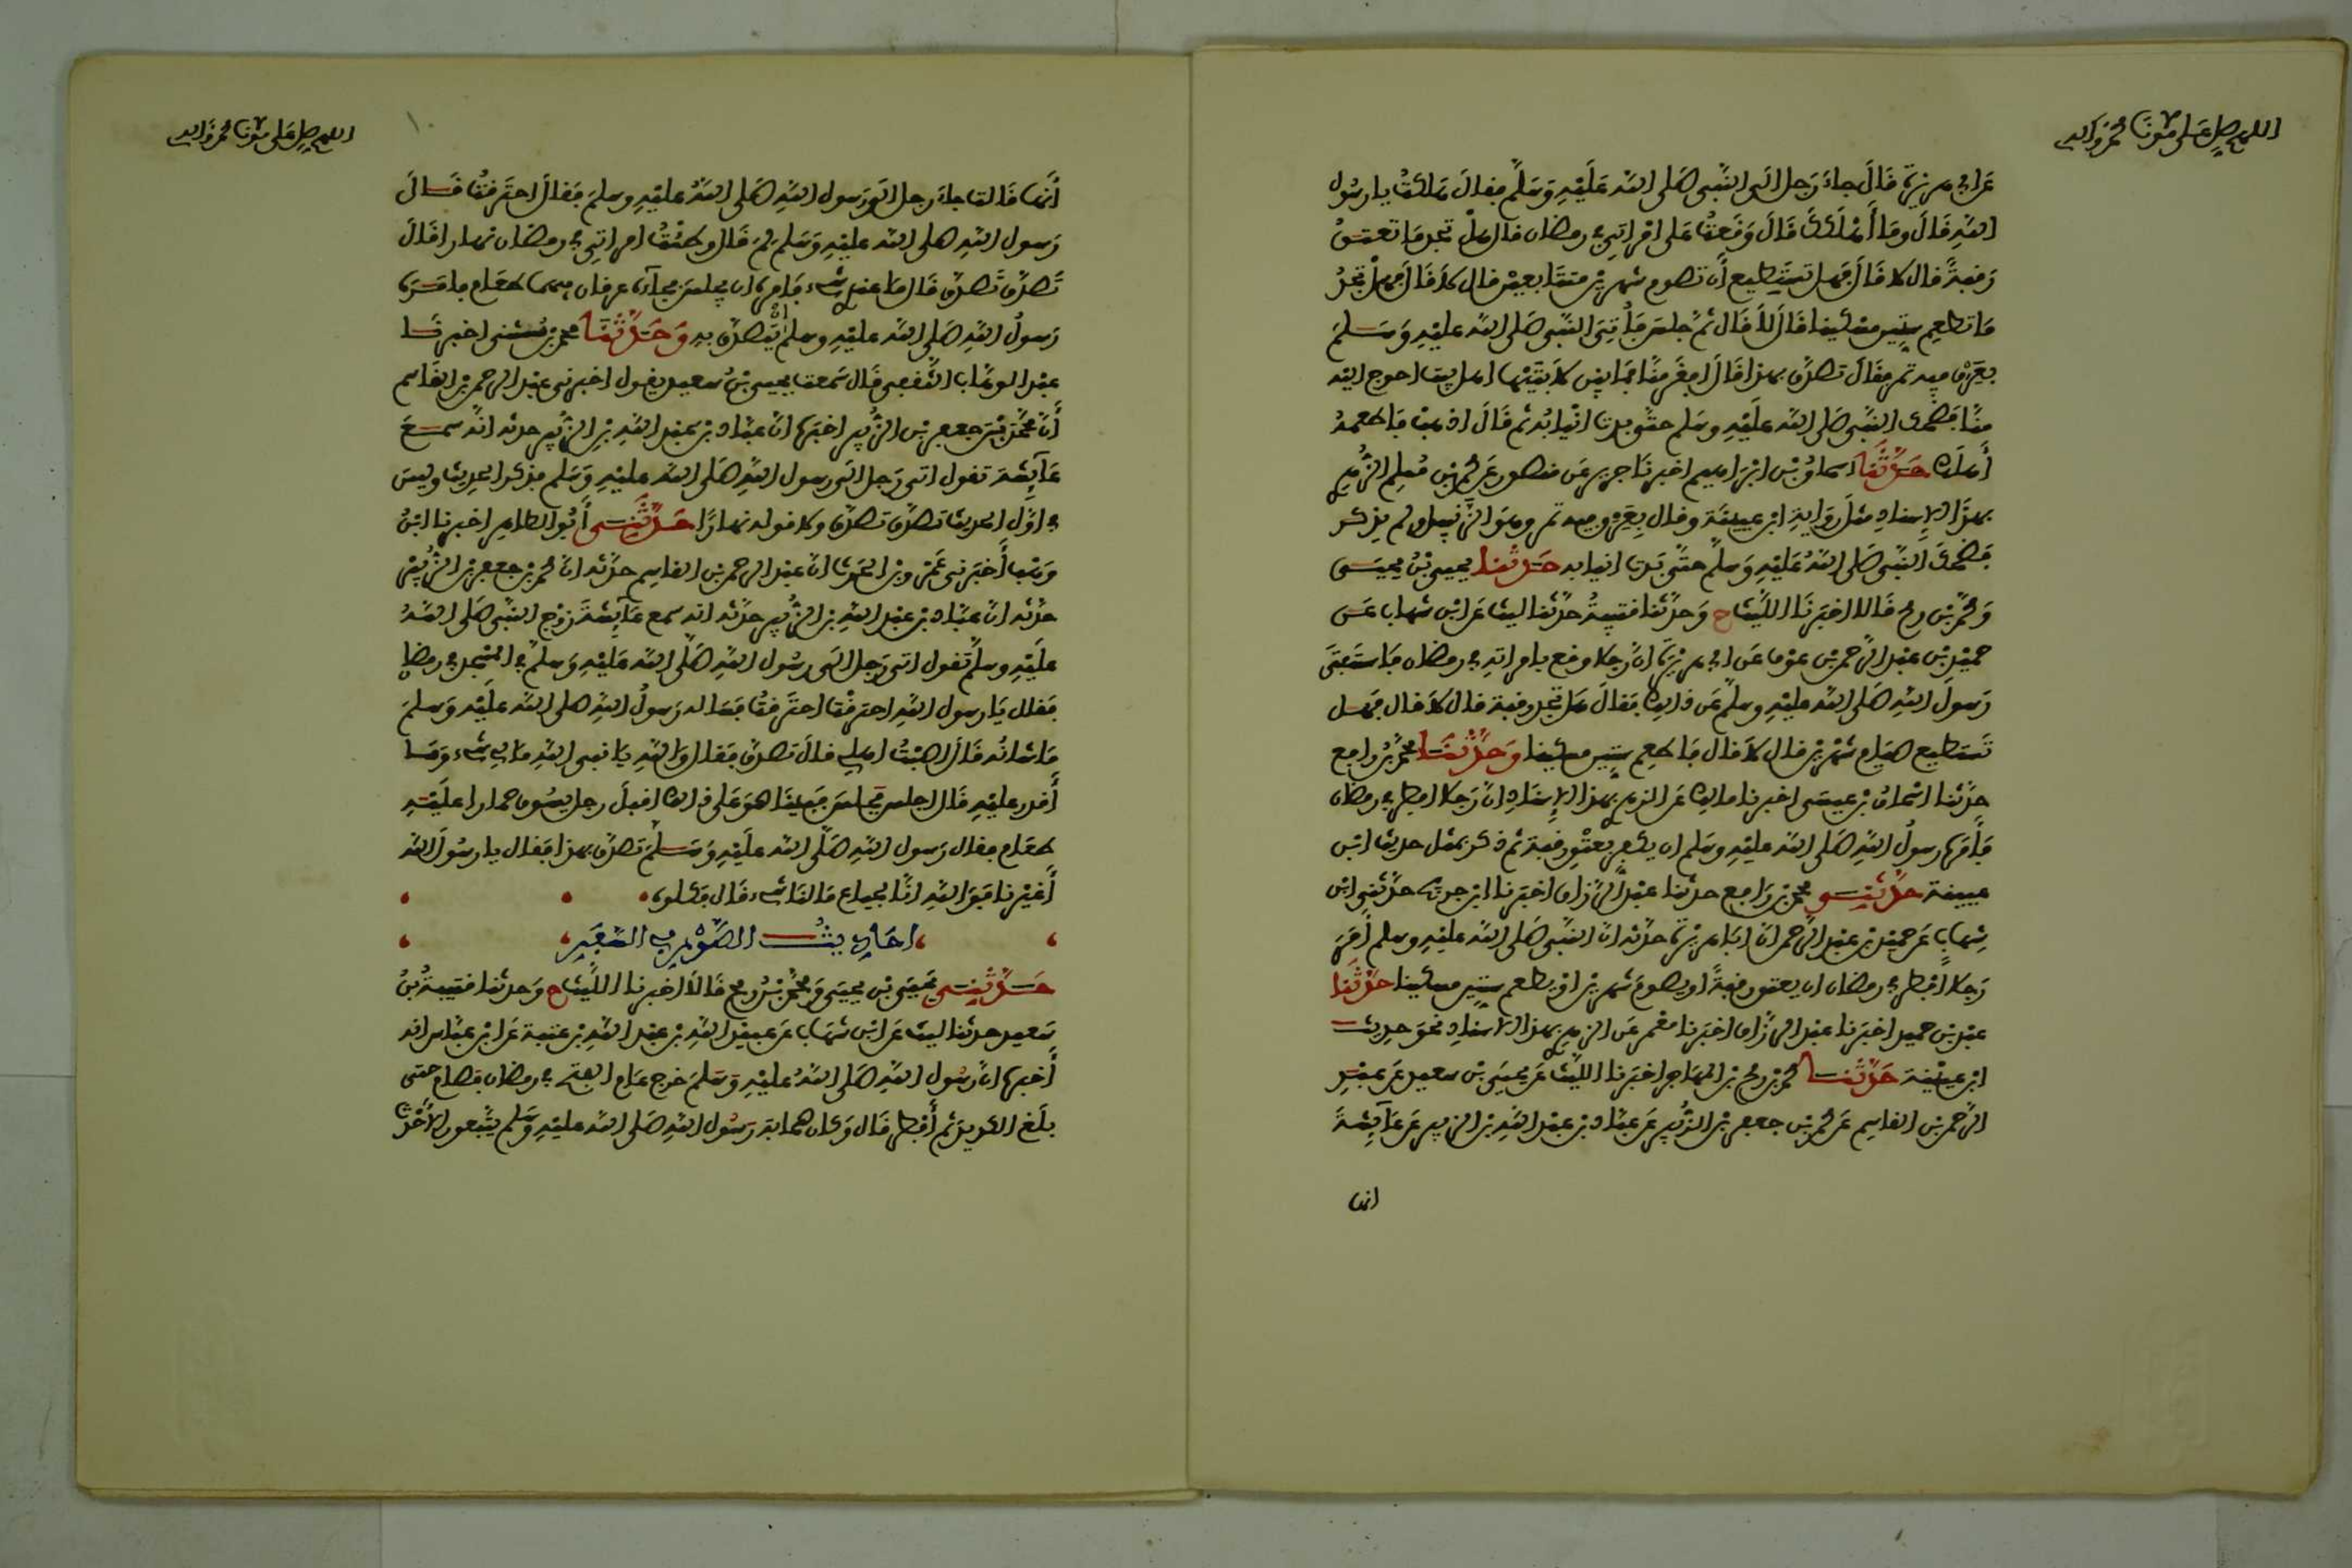 اللهم صل على سيدنا محمد وآله
عن أبي هريرة قَالَ جاءَ رَجل الى النَّبي صَلى الله عَلَيْهِ وَسَلَّم فقالَ هَلكتُ يا رسُول
اللهِ قَالَ ومَا أَهْلَكَكَ قَالَ وَقَعتُ عَلى امْرَاتِي في رمضان قال هلْ تجد مَا تعتق
رَقبةً قال لا قَالَ فهل تستَطيع أن تصوم شهرين متتَابعين قال لا قَالَ فهلْ تجدُ
مَا تطعِم ستِّين مسْكينا قَالَ لا قَال ثمَّ جلسَ فأُتِيَ النَّبي صَلى الله عليْهِ وَسَلمَ
بعَرَق فيه تمر فقَالَ تصدَّق بهذا قَالَ افقَرَ منَّا فمَا بيْن لابَتَيْها اهل بيت احوج اليه
منَّا فضَحك النَّبي صَلى الله عَلَيْهِ وسَلم حتَّى بدت انْيابُه ثم قَالَ اذهب فاطعمهُ
أهلكَ حَدَّثَنَا اسحاقُ بْن ابْرَاهيم اخبرنَا جرير عَن منصور عَن محمد بْن مُسلِم الزهري
بهذَا الاِسنادِ مثلَ رِوَايةِ ابن عيينَة وقال بِعَرَق فيه تمر وهوَ الزَّنبيل ولم يذكر
فَضَحكَ النَّبي صَلى اللهُ عَلَيْهِ وَسَلَّم حتَّى بَدت انيابه حَدثنا يحيى بْنُ يحيَى
وَمحمَّد بْن رمح قَالا اخبَرنَا اللَّيْث ح وَحدَّثنا قتيبةُ حدَّثنا ليث عَن ابْن شهاب عَن
حميْدِ بْن عبْد الرَّحمن بْن عَوْف عَن ابي هريرَة انَّ رَجلا وقع بامراتِه في رمضان فَاستفتَى
رَسولَ اللهِ صَلى الله عليْهِ وسلَّم عَن ذلك فقالَ هل تجد رقبة قال لا قال فهل
تَستطيع صيَام شهْرين قال لا قال فَاطعِم ستين مسكينا وَحَدَّثَنَا محمَّد بْنُ رافع
حدَّثنا اسْحاقُ بن عيسَى اخبرنا مالك عَن الزهري بهذا الاِسْنَادِ انَّ رَجلا افطر في رمضان
فَأمَرهُ رسولُ اللهِ صَلى الله عليْهِ وسَلم ان يكفر بعتْقِ رقبة ثم ذكر بمثل حديث ابْن
عيينة حدَّثَنِي محمد بن رَافع حدثنا عبْد الرَّزاق اخبَرنا ابن جريج حدَّثني ابْن
شهَابٍ عَن حميْد بن عبْد الرَّحمن انَّ ابَا هريرَة حدَّثه انَّ النَّبي صَلى الله عليْهِ وسلم أمَرَ
رَجلا افْطر في رمضان ان يعتق رقبةً او يصومَ شهرين اوْ يطعم ستِّين مسكينا حَدَّثَنَا
عبْد بْن حميد اخبَرنا عبْد الرزَّاق اخبَرنا معْمر عَن الزهري بهذا الاسْنادِ نحوَ حديث
ابن عيَيْنة حَدَّثَنَا محمد بن رمح بن المهَاجر اخبَرنا اللَّيْث عَن يحيَى بْن سعيد عَن عبْدِ
الرَّحمن بْن القاسِم عَن محمد بْن جعفر بْن الزُّبير عَن عبَّاد بن عبْد اللهِ بْن الزبير عَن عَائِشةَ
انها
اللهم صل على سيدنا محمد وآله
١٠
أنَّها قَالت جاءَ رجل الَى رَسول اللهِ صَلى اللهُ عليْهِ وسلمَ فَقالَ احتَرقتُ قَالَ
رَسول اللهِ صلى الله عليْهِ وَسَلم لِمَ قَالَ وطئْتُ امراتِي في رمضان نهارا قَالَ
تَصدَّق تَصدَّق قَالَ مَا عندِي شيء فَامرهُ ان يجلسَ فجآءه عرقان فيهما طعَام فامَرهُ
رَسولُ اللهِ صَلى الله عليْهِ وسلم ان يَتصدَّق بهِ وَحَدَّثَنَا محمد بن مُثنى اخبرنَا
عبْد الوهَّاب الثَّقفي قَال سَمعت يحيى بْنُ سعيد يقول اخبرني عبْد الرحمن بن القَاسم
أنَّ محمَّد بْنَ جعفر بْن الزُّبير اخبَرهُ انَّ عبَّاد بن عبْد اللهِ بْن الزُّبير حدثه انَّه سمعَ
عَآئِشةَ تقول اتى رَجل الَى رسول اللهِ صَلى الله عليْهِ وَسَلم فذكر الحديث وليسَ
في اوَّل الحديث تصدَّق تصدَّق ولا قوله نهارًا حَدَّثَنِي أبُو الطاهِر اخبرنا ابْنُ
وَهْب أخبَرني عَمْرو بْن الحَارث انَّ عبْد الرحمن بْن القاسِم حدَّثه انَّ محمد بْن جعفر بْن الزُّبيْر
حدَّثه انَّ عبَّاد بن عبْد اللهِ بْن الزُّبير حدَّثه انه سمع عَآئِشةَ زوْج النَّبي صَلى اللهُ
عليْهِ وسلَّم تقول اتى رَجل الَى رسُول اللهِ صَلَّى الله عَليْهِ وَسلمَّ في المسْجد في رمضان
فقال يَا رسول اللهِ احترقْت احتَرقتُ فسَاله رَسولُ اللهِ صلى الله عليْه وَسلمَ
مَا شانُه قَالَ اصبْتُ اهلِي قالَ تصدَّق فقال وَاللهِ يا نبي اللهِ مَا لي شيء وَمَا
أقدر عليْهِ قَال اجلس فجلسَ فبيْنَا هوَ عَلى ذلك اقبلَ رجل يسُوق حمارا علَيْهِ
طعَام فقال رَسول اللهِ صَلَّى الله علَيْهِ وَسَلمَ تصدَّق بهذا فقال يا رسُولَ الله
أغَيْرنا فوَ اللهِ انَّا لجياع مَا لنَا شيء قَال فكلوه
احَادِيثُ الصَّوْم في السَّفَرِ
حَدَّثَنِي يَحيَى بْن يحيَى وَمحمَّد بْنُ رمح قَالا اخبَرنا اللَّيْث ح وَحدثنا قتيبةُ بْنُ
سَعيد حدثنا ليث عَن ابْن شهَاب عَن عبيْد اللهِ بْن عبْد اللهِ بْن عتبة عَن ابْن عبَّاس انه
أخبرهُ انَّ رسُول اللهِ صَلى اللهُ عليْهِ وَسَلمَ خرج عَام الفتح في رمضان فصَام حتى
بلَغ الكديد ثم أفْطر قَال وَكان صحابة رَسُول اللهِ صَلى الله عليْهِ وَسَلم يتَّبعون الأحْدث